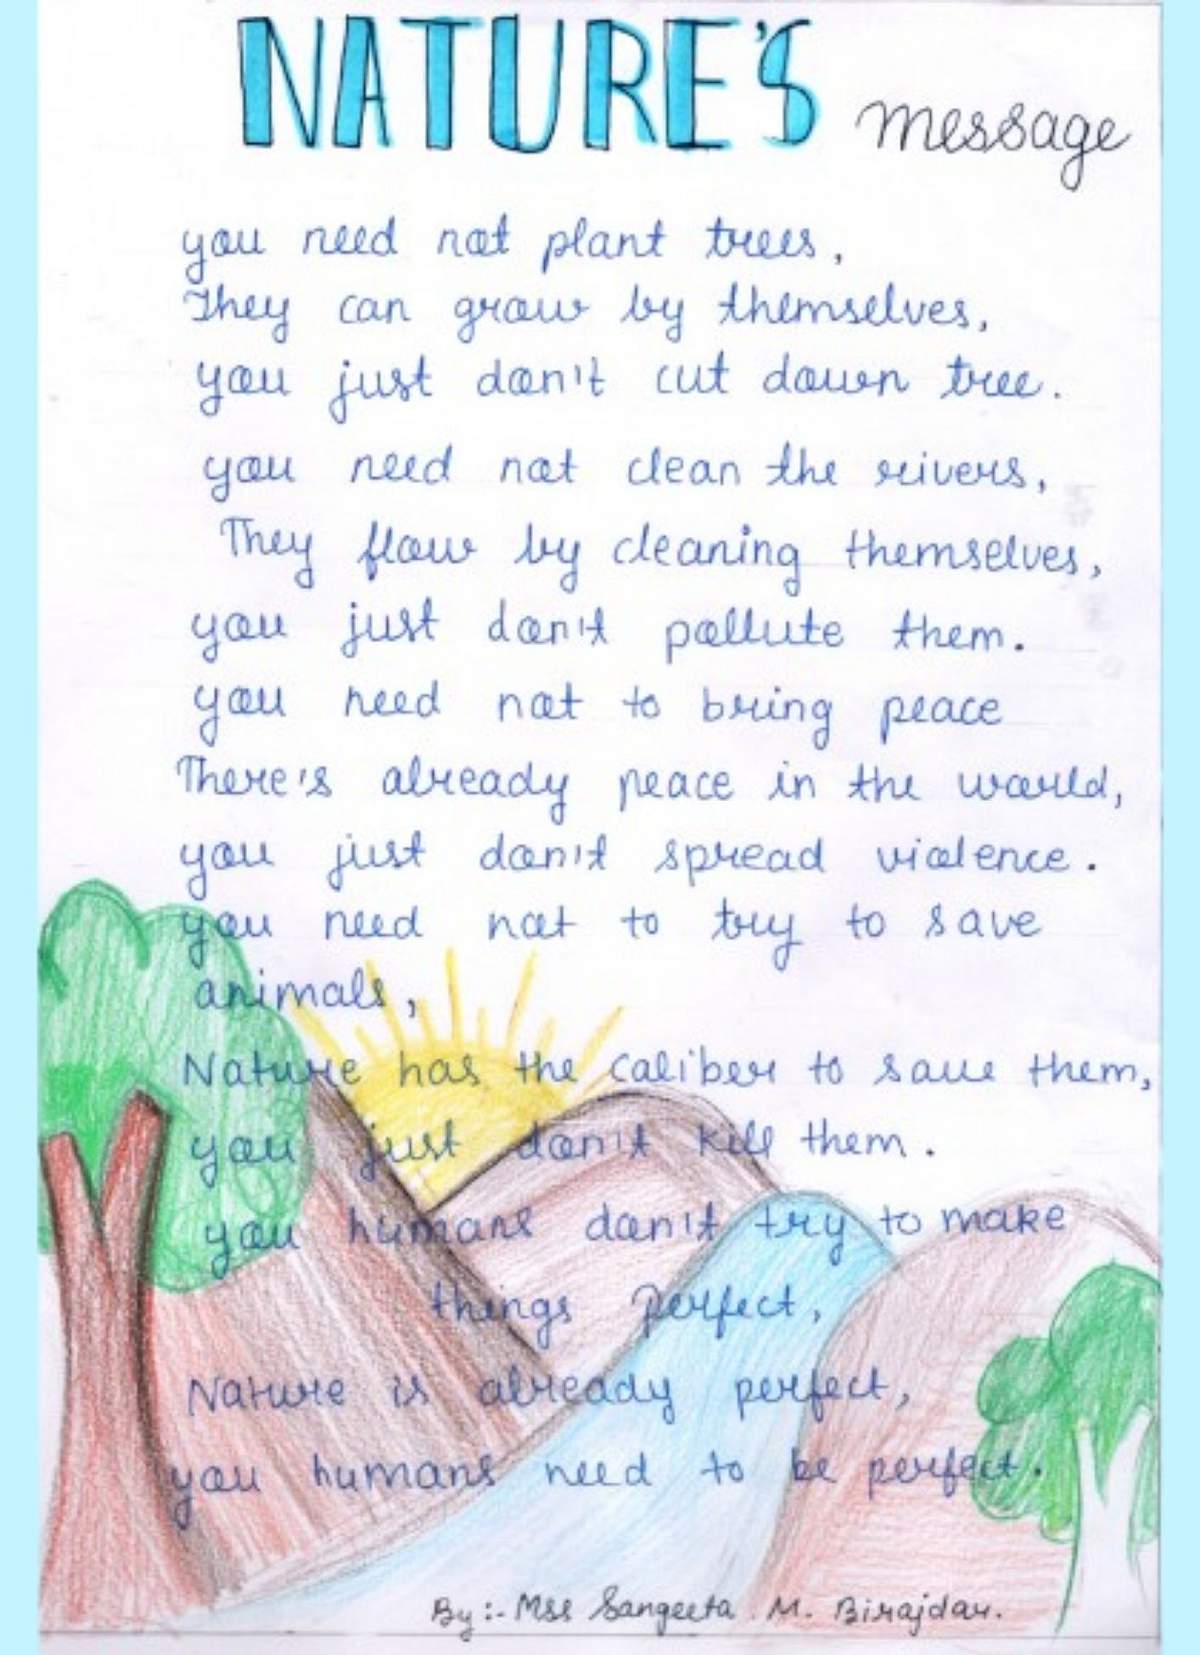 NATURE'S message
you need not plant trees,
They can grow by themselves,
you just don't cut down tree.
you need not clean the rivers,
They flow by cleaning themselves,
you just don't pollute them.
you need not to bring peace
There's already peace in the world,
you just don't spread violence.
you need not to try to save
animals,
Nature has the caliber to save them,
you just don't kill them.
you humans don't try to make
things perfect,
Nature is already perfect,
you humans need to be perfect.
By :- Mss Sangeeta . M. Birajdar.